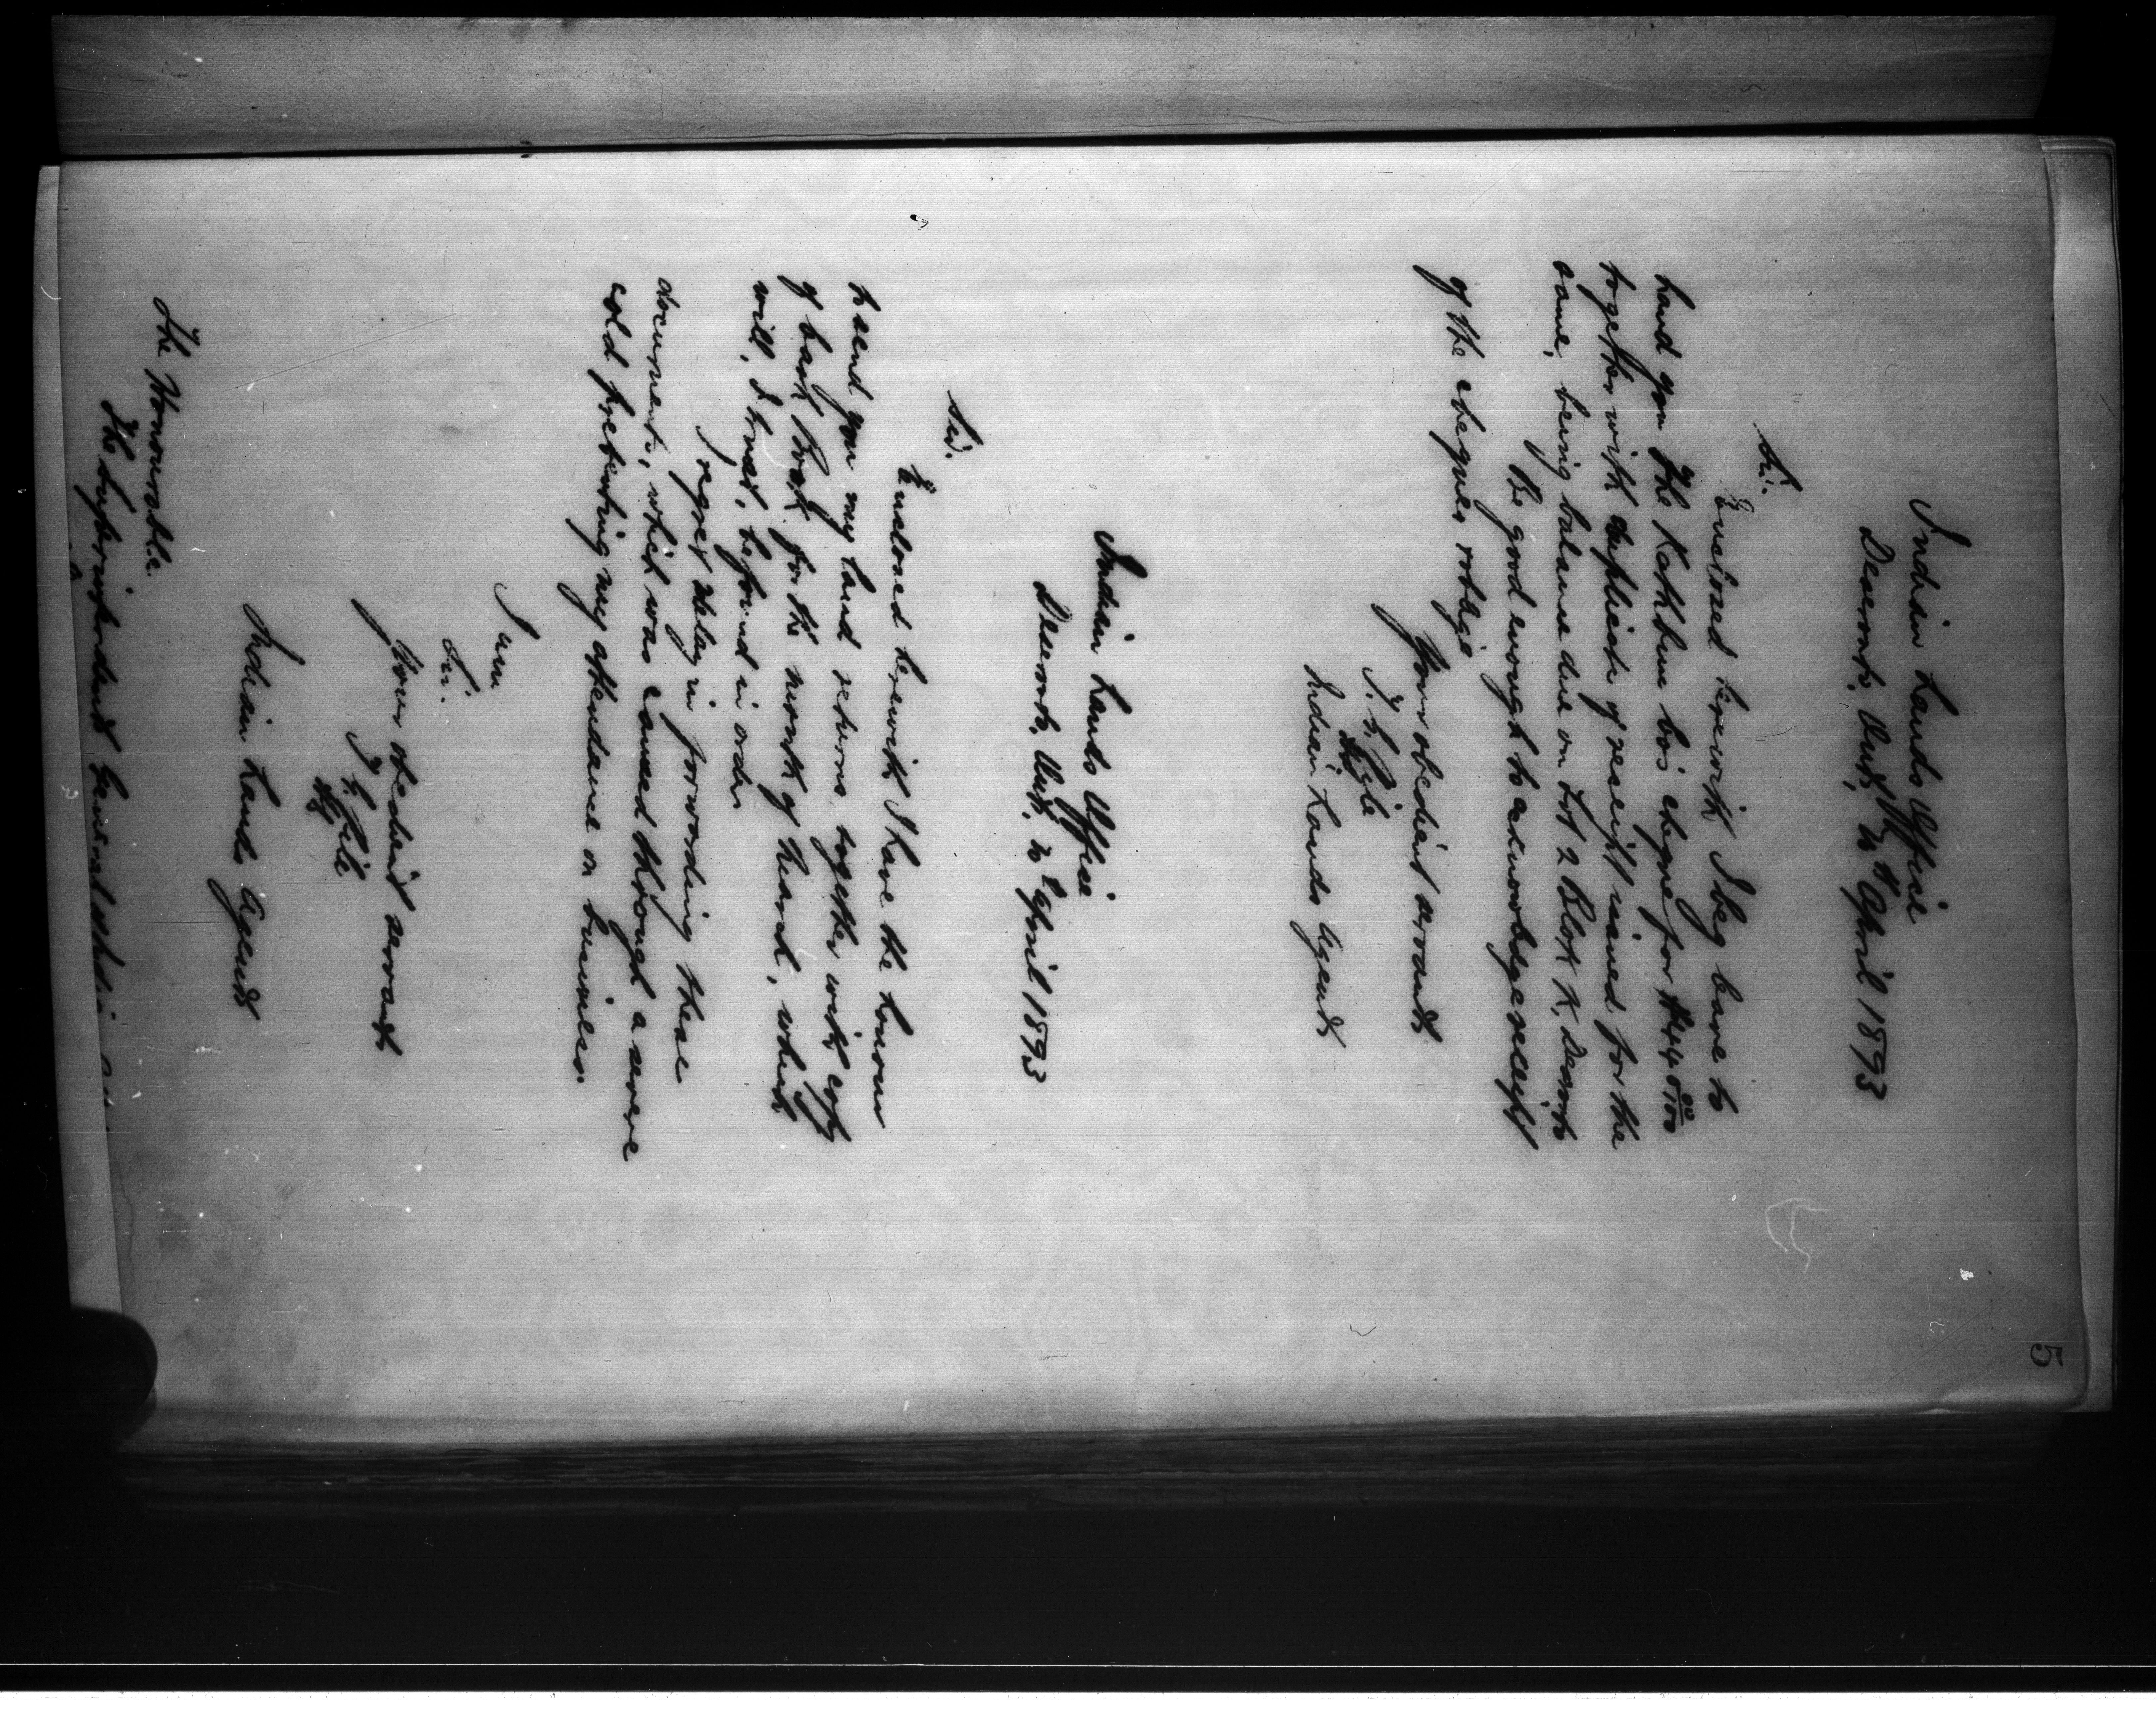 5
Indian Lands Office
Deseronto, Ont, 10th April 1893
Sir.
Enclosed herewith I beg leave to
hand you The Rathbun Co's cheque for $44 00/100
together with duplicate of receipt issued for the
same, being balance due on Lot 2 Block K, Deseronto
Be good enough to acknowledge receipt
of the cheque & oblige
Your obedient servant
Indian Lands Agent
Indian Lands Office
Deseronto, Ont, 10 April 1893
Sir.
Enclosed herewith I have the honour
to send you my land returns together with copy
of bank Book for the month of March, which
will, I trust, be found in order
I regret delay in forwarding these
documents, which was caused through a severe
cold preventing my attendance on business.
I am
Sir.
Your obedient servant
Indian Lands Agent
The Honourable.
The Superintendent General of Indian